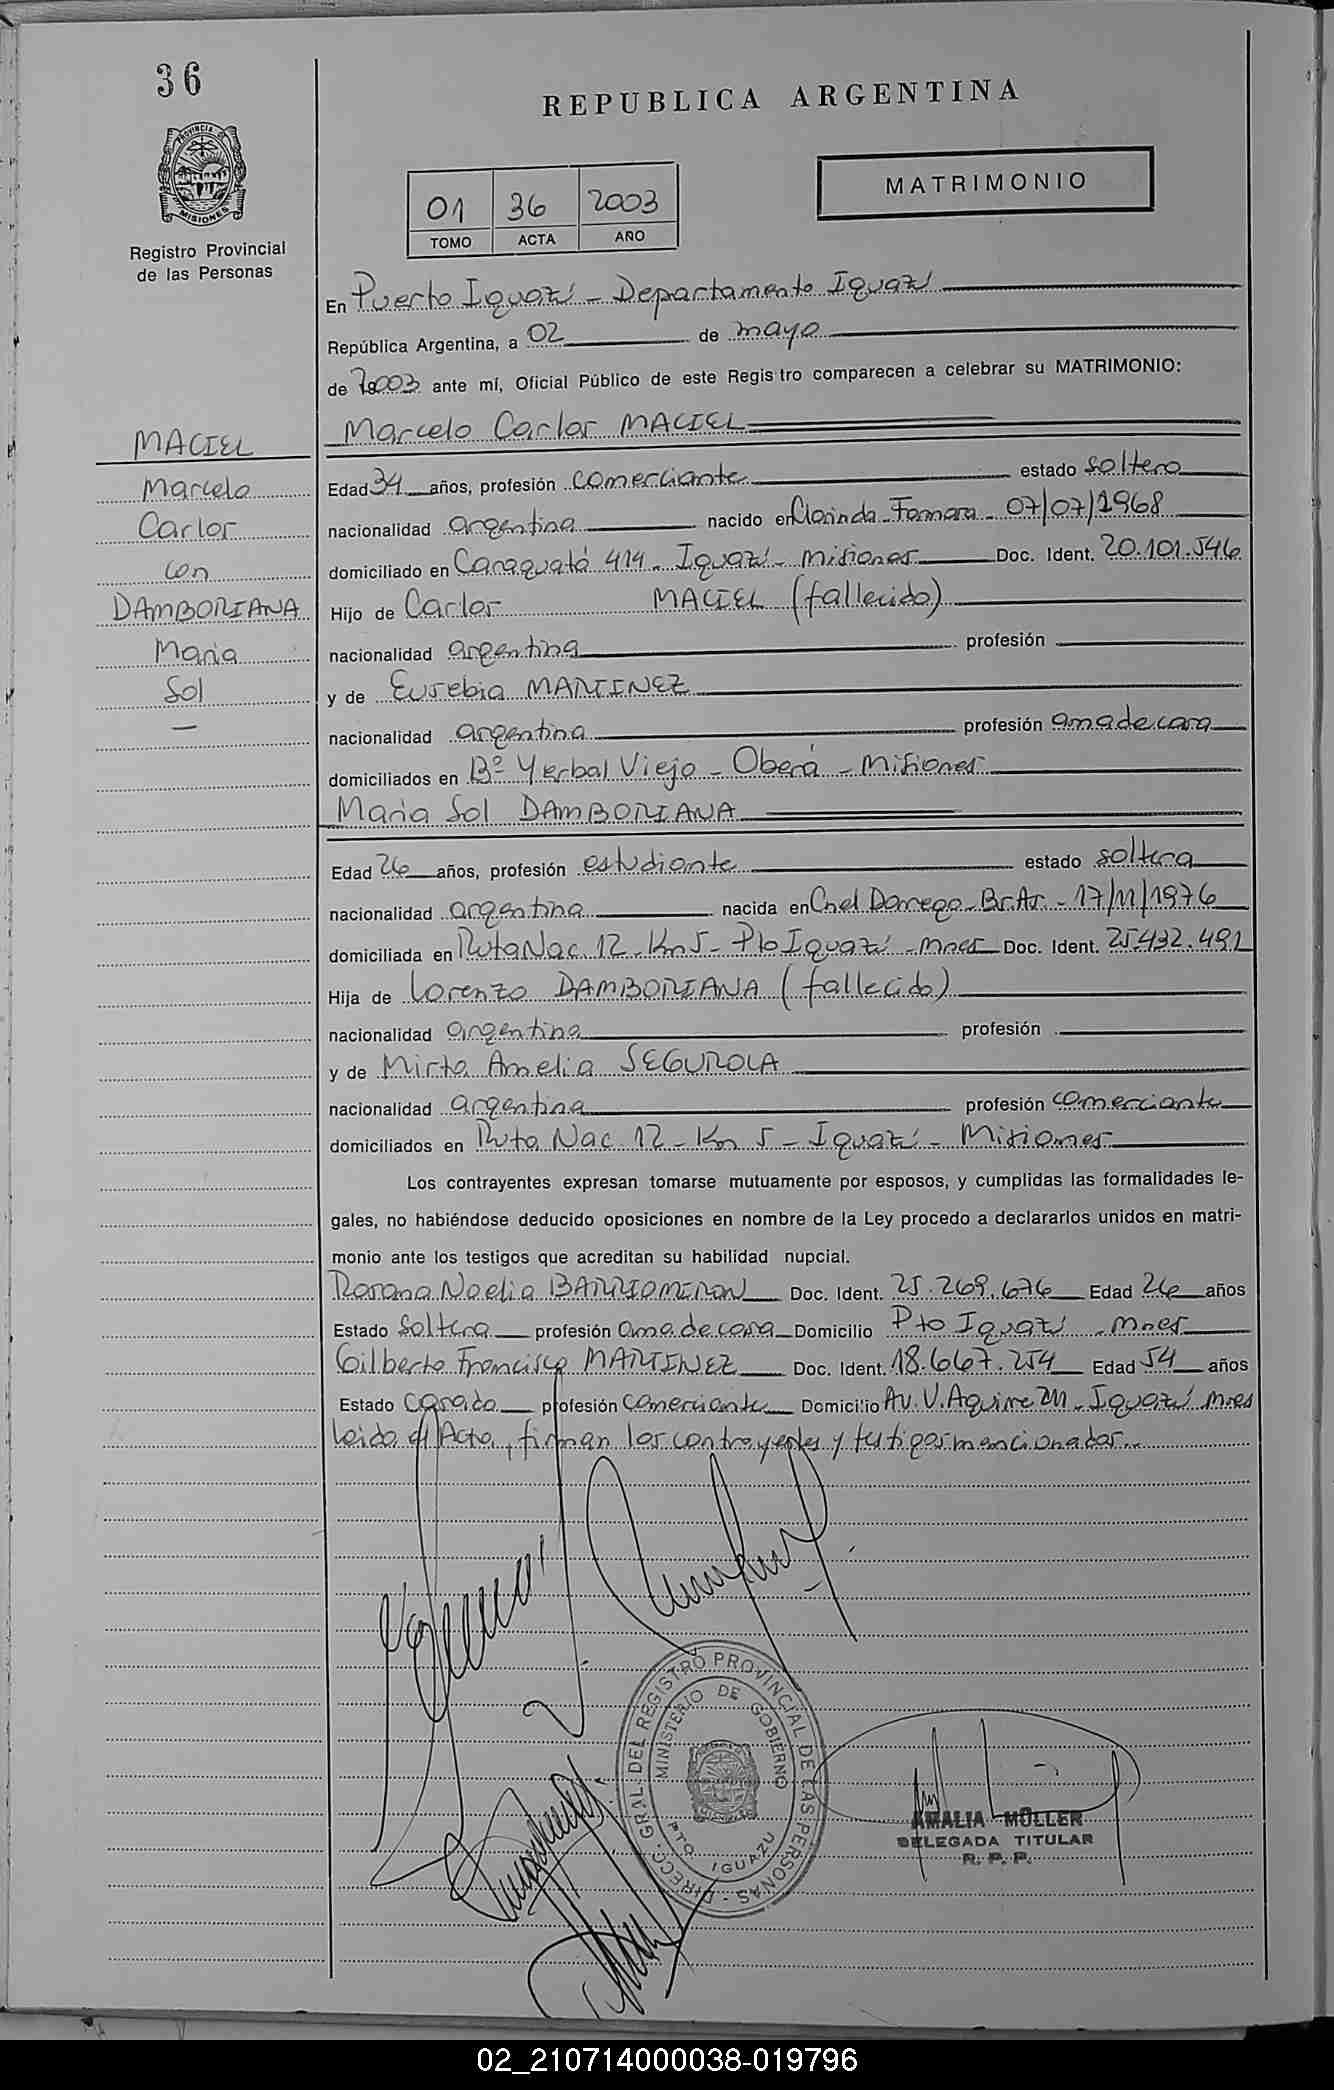 36
REPUBLICA ARGENTINA
PROVINCIA DE
MISIONES
Registro Provincial
de las Personas
01 36 2003
TOMO ACTA AÑO
MATRIMONIO
En Puerto Iguazú - Departamento Iguazú
República Argentina, a 02 de mayo
de 2003 ante mí, Oficial Público de este Registro comparecen a celebrar su MATRIMONIO:
MACIEL
Marcelo
Carlos
con
DAMBORIANA
Maria
Sol
—
Marcelo Carlos MACIEL
Edad 34 años, profesión comerciante estado soltero
nacionalidad argentina nacido en Clorinda - Formosa - 07/07/1968
domiciliado en Caraguatá 414 - Iguazú - Misiones Doc. Ident. 20.101.546
Hijo de Carlos MACIEL (fallecido)
nacionalidad argentina profesión
y de Eusebia MARTINEZ
nacionalidad argentina profesión ama de casa
domiciliados en Bº Yerbal Viejo - Oberá - Misiones
Maria Sol DAMBORIANA
Edad 26 años, profesión estudiante estado soltera
nacionalidad argentina nacida en Cnel Dorrego - Bs. As. - 17/11/1976
domiciliada en Ruta Nac. 12 - Km 5 - Pto Iguazú - Mnes Doc. Ident. 25.432.491
Hija de Lorenzo DAMBORIANA (fallecido)
nacionalidad argentina profesión
y de Mirta Amelia SEGUROLA
nacionalidad argentina profesión comerciante
domiciliados en Ruta Nac. 12 - Km 5 - Iguazú - Misiones
Los contrayentes expresan tomarse mutuamente por esposos, y cumplidas las formalidades le-
gales, no habiéndose deducido oposiciones en nombre de la Ley procedo a declararlos unidos en matri-
monio ante los testigos que acreditan su habilidad nupcial.
Rosana Noelia BARRIOMIRON Doc. Ident. 25.269.676 Edad 26 años
Estado soltera profesión ama de casa Domicilio Pto Iguazú - Mnes
Gilberto Francisco MARTINEZ Doc. Ident. 18.667.254 Edad 54 años
Estado casado profesión comerciante Domicilio Av. V. Aguirre 211 - Iguazú Mnes
leido el Acta, firman los contrayentes y testigos mencionados.-
DIRECC. GRAL. DEL REGISTRO PROVINCIAL DE LAS PERSONAS
MINISTERIO DE GOBIERNO
PTO. IGUAZU
AMALIA MÜLLER
DELEGADA TITULAR
R. P. P.
02_210714000038-019796